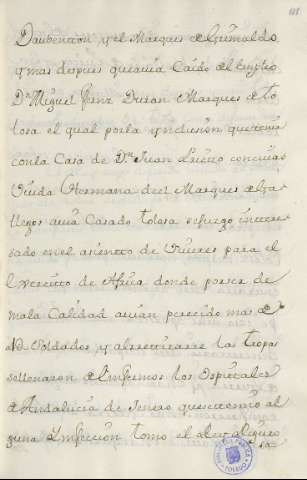 Daubencion y el Marques de Grimaldo
y mas despues que avia Caido del empleo
Dn. Miguel Frnz Duran Marques de to
losa el qual por la ynclusion que tenia
con la Casa de Dn. Juan
Viuda Hermana del Marques de Ga
llegos avia Casado tolosa interre
sado en el asiento de Viveres para el
Exercito de Africa donde por ser de
mala Calidad avian perecido mas de
Soldados y al retirarse las tropas
se llenaron de Enfermos los Ospitales
de Andalucia de que se temio al
guna Infeccion tomo el
TOLEDO